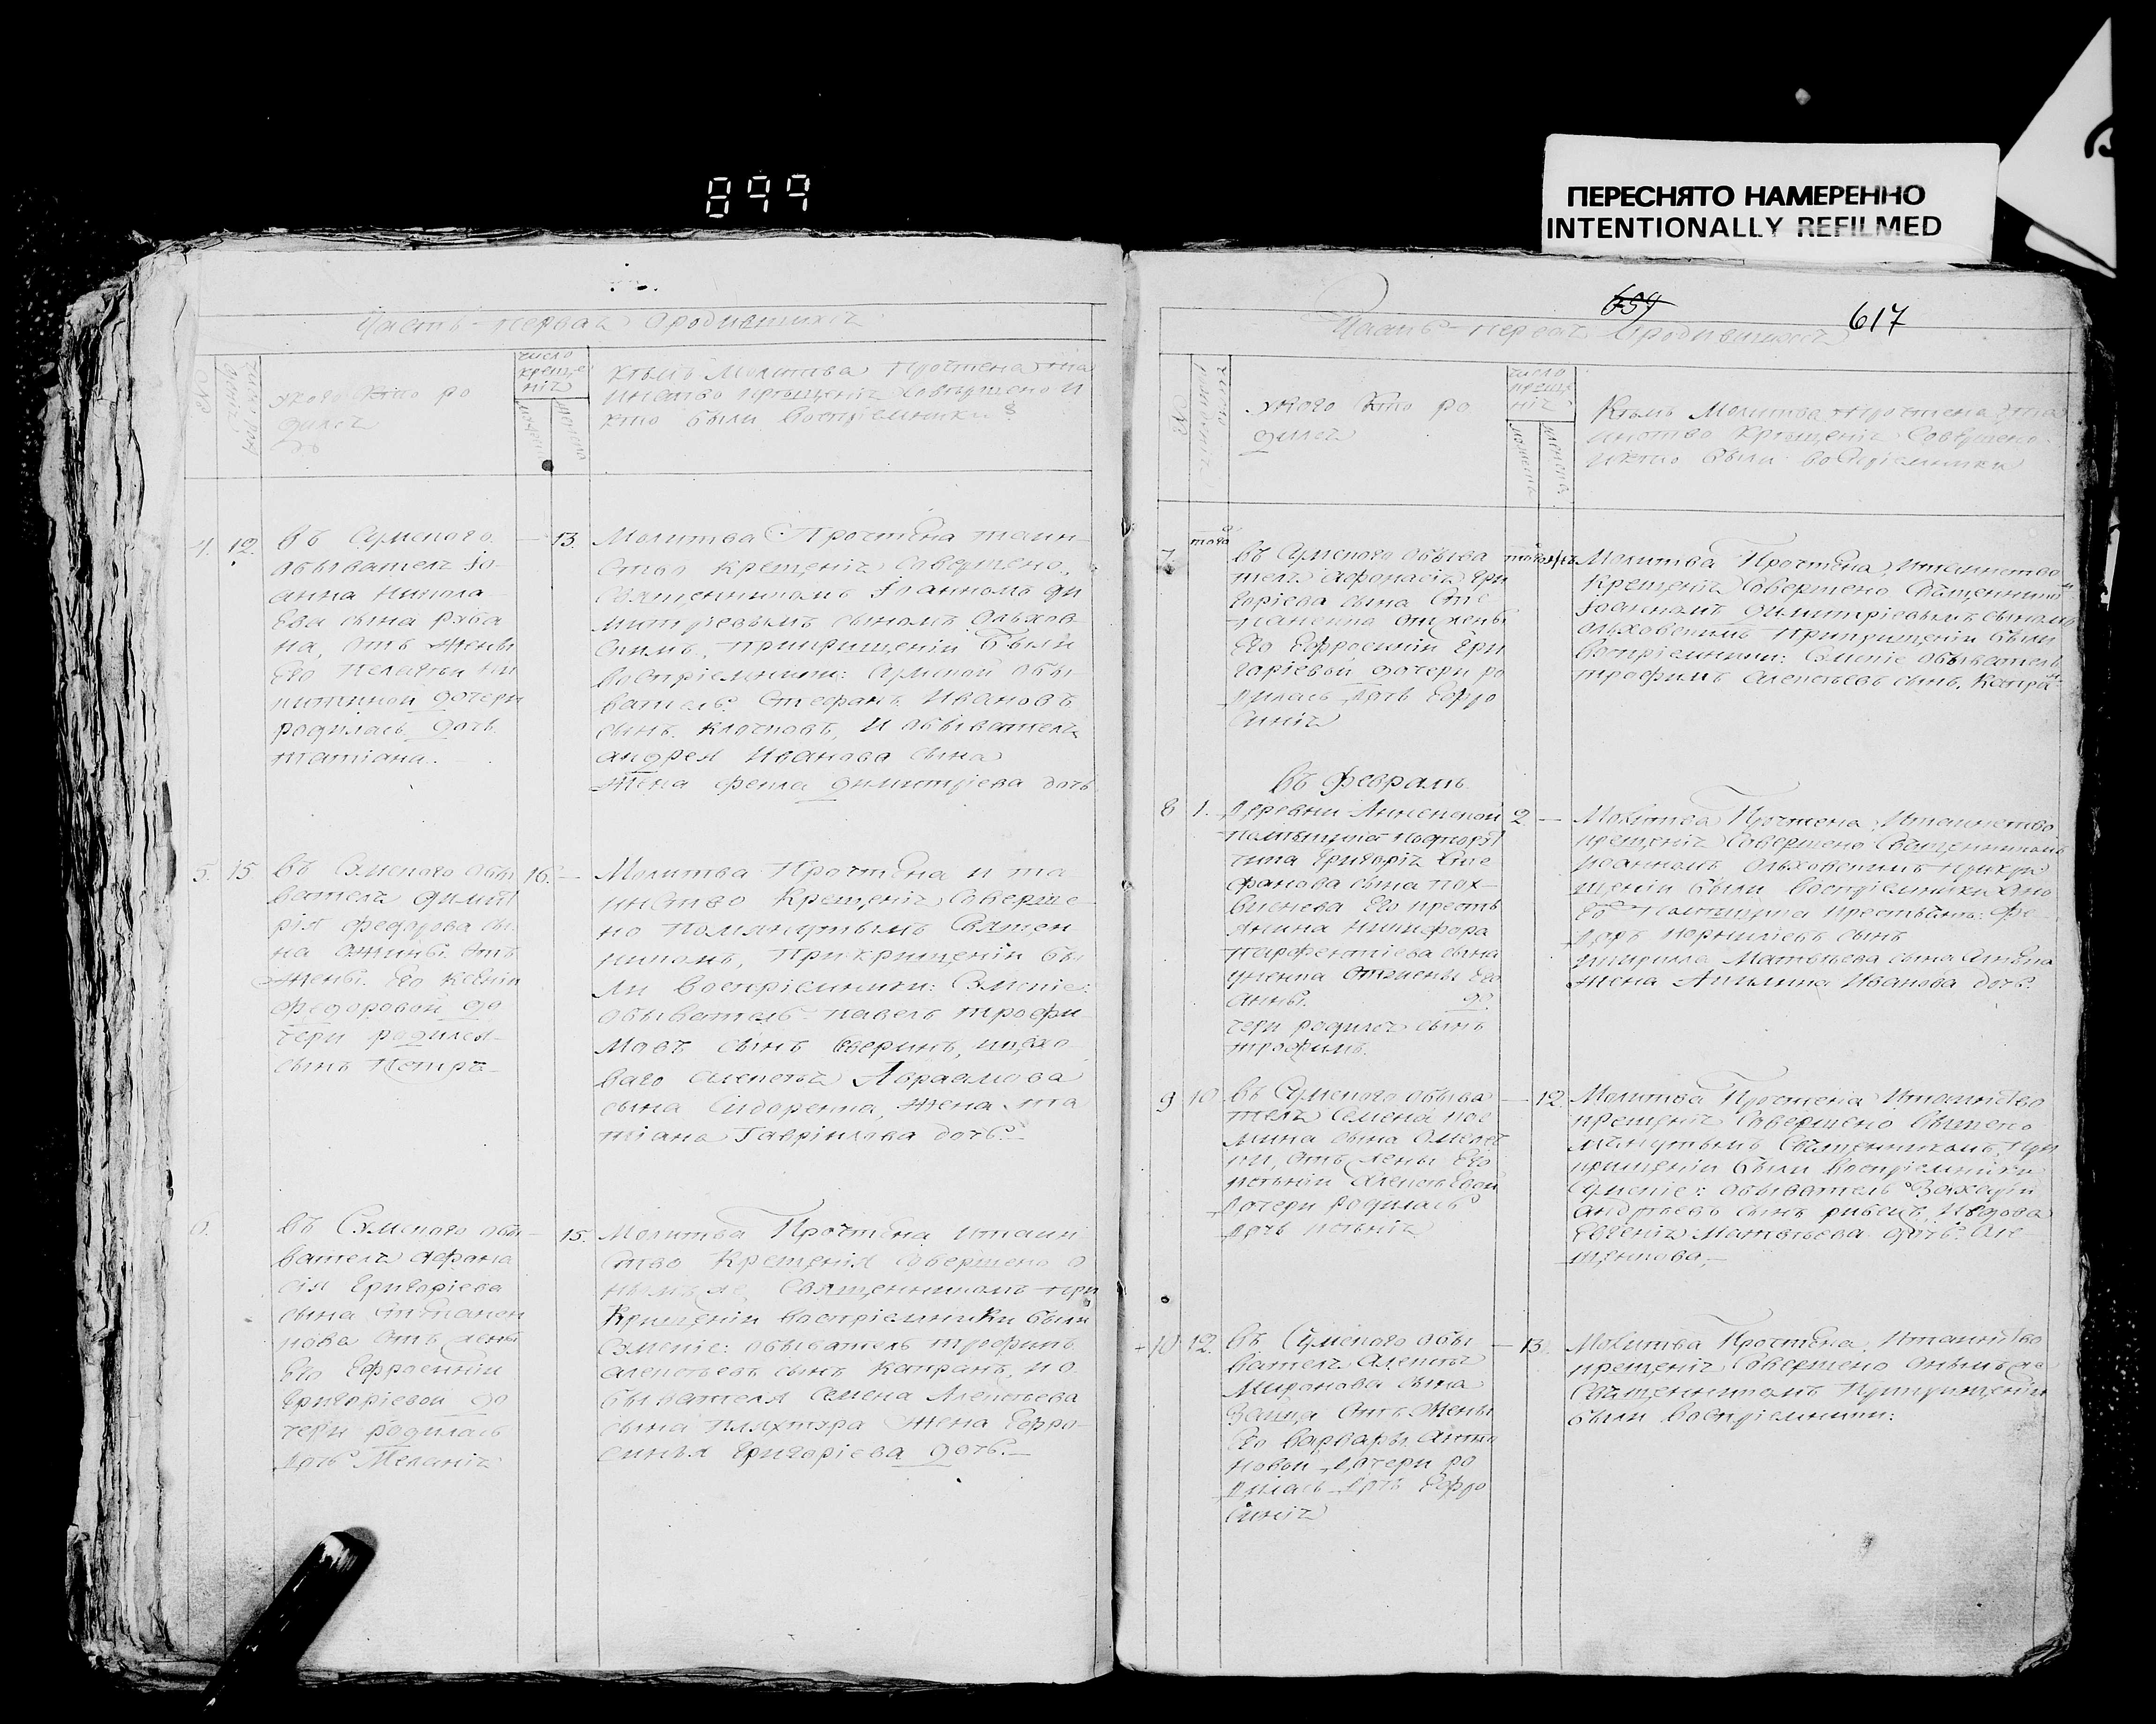 899
ПЕРЕСНЯТО НАМЕРЕННО
INTENTIONALLY REFILMED
Часть первая Ородившихся
№
укого кто ро
дился
число
креще
нія
мужеска
женска
кѣмъ Молитва Прочтена ита
инство крещенія Совершено и
кто были Воспріемники
4. 12.
въ Сумскаго
обывателя Іо
анна Никола
ева сына
на, отъ жены
его Пелагеи Ни
китиной дочери
родилась дочь
татіана.
— 13.
Молитва Прочтена таин
ство крещенія Совершено
Священникомъ Іоанномъ ди
митріевымъ сыномъ Ольхов
скимъ, прикрищеніи были
воспріемники: Сумской обы
ватель Стефанъ Ивановъ
сынъ, и обывателя
андрея Иванова сына
жена фекла димитріева дочь
5. 15
въ Сумскаго обы
вателя димит
рія федорова сы
на отъ
жены его Ксеніи
федоровой до
чери родился
сынъ Петръ
16. —
Молитва Прочтена и та
инство Крещенія Соверше
но Помянутымъ Священ
никомъ, Прикрищеніи бы
ли Воспріемники: Сумскіе:
обыватель павелъ трофи
мовъ сынъ
алексѣя Авраамова
сына Сидоренка, жена та
тіана Гавріилова дочь
въ Сумскаго обы
вателя Афана
сія Григоріева
сына
отъ жены
его Ефросиніи
Григоріевой до
чери родилась
дочь Меланія
— 15.
Молитва Прочтена итаин
ство Крещенія Совершено о
нымъ же Священникомъ при
Крищеніи воспріемники были
Сумскіе: обыватель трофимъ
алексѣевъ сынъ Капранъ, и о
бывателя Семена Алексѣева
сына жена Ефро
синья Григоріева дочь
659
617
Часть первая Ородившихся
№
укого кто ро
дился
число
крище
нія
мужеска
женска
Кѣмъ Молитва Прочтена ита
инство Крещенія Совершено
икто были воспріемники
7
того
въ Сумскаго обыва
теля Афонасія Гри
горіева сына Сте
паненка отжены
его Ефросиніи Гри
горіевой дочери ро
дилась дочь Ефро
синія
Молитва Прочтена, Итаинство
Крещенія Совершено Священником
Іоанномъ димитріевымъ сыномъ
ольховскимъ Прикрищеніи были
воспріемники: Сумскіе обыватель
трофимъ алексѣевъ сынъ, Капран
Въ февралѣ
8 1.
Деревни
помѣщика
Григорія Сте
фанова сына
его кресть
янина Никифора
парфентіева сына
отжены его
анны. до
чери родился сынъ
трофимъ.
2 —
Молитва Прочтена Итаинство
крещенія Совершено Священникомъ
Іоанномъ Ольховскимъ Прикри
щеніи были Воспріемники Оно
го Помѣщика крестьянъ: Фе
доръ корниліевъ сынъ
кирилла Матвѣева сына
жена Акилина Иванова дочь
9 10
въ Сумскаго обыва
теля Семена кос
мина сына
отъ жены Его
Алексѣевой
дочери родилась
дочь
— 12.
Молитва Прочтена Итаинство
крещенія Совершено Вышепо
мянутымъ Священникомъ, При
крищеніи были Воспріемники
Сумскіе: обыватель
андрѣевъ сынъ, ивдова
Евгенія Матвѣева дочь
10 12.
въ Сумскаго обы
вателя Алексѣя
Миронова сына
Заица Отъ Жены
Его Варвары Анто
новой дочери ро
дилась дочь Ефро
синія
— 13.
Молитва Прочтена, Итаинство
крещенія Совершено Онымъ же
Священникомъ Прикрищеніи
были Воспріемники: